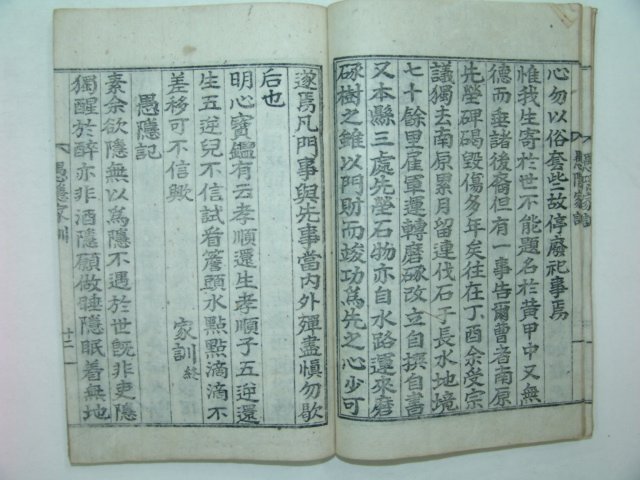 心勿以俗套些故停廢祀事焉
惟我生寄於世不能題名於黃甲中又無
德而垂諸後裔但有一事告爾曹者南原
先塋碑碣毀傷多年矣往在丁酉余受宗
議獨去南原累月留連伐石于長水地境
七十餘里雇軍運轉磨琢改立自撰自書
又本縣三處先塋石物亦自水路運來磨
琢樹之雖以門財而竣功爲先之心少可
遂焉凡門事與先事當內外殫盡愼勿歇
后也
明心寶鑑有云孝順還生孝順子五逆還
生五逆兒不信試看簷頭水點點滴滴不
差移可不信歟
家訓終
愚隱記
素余欲隱無以爲隱不遇於世旣非吏隱
獨醒於醉亦非酒隱願做睡隱眠着無地
愚隱家訓
十二